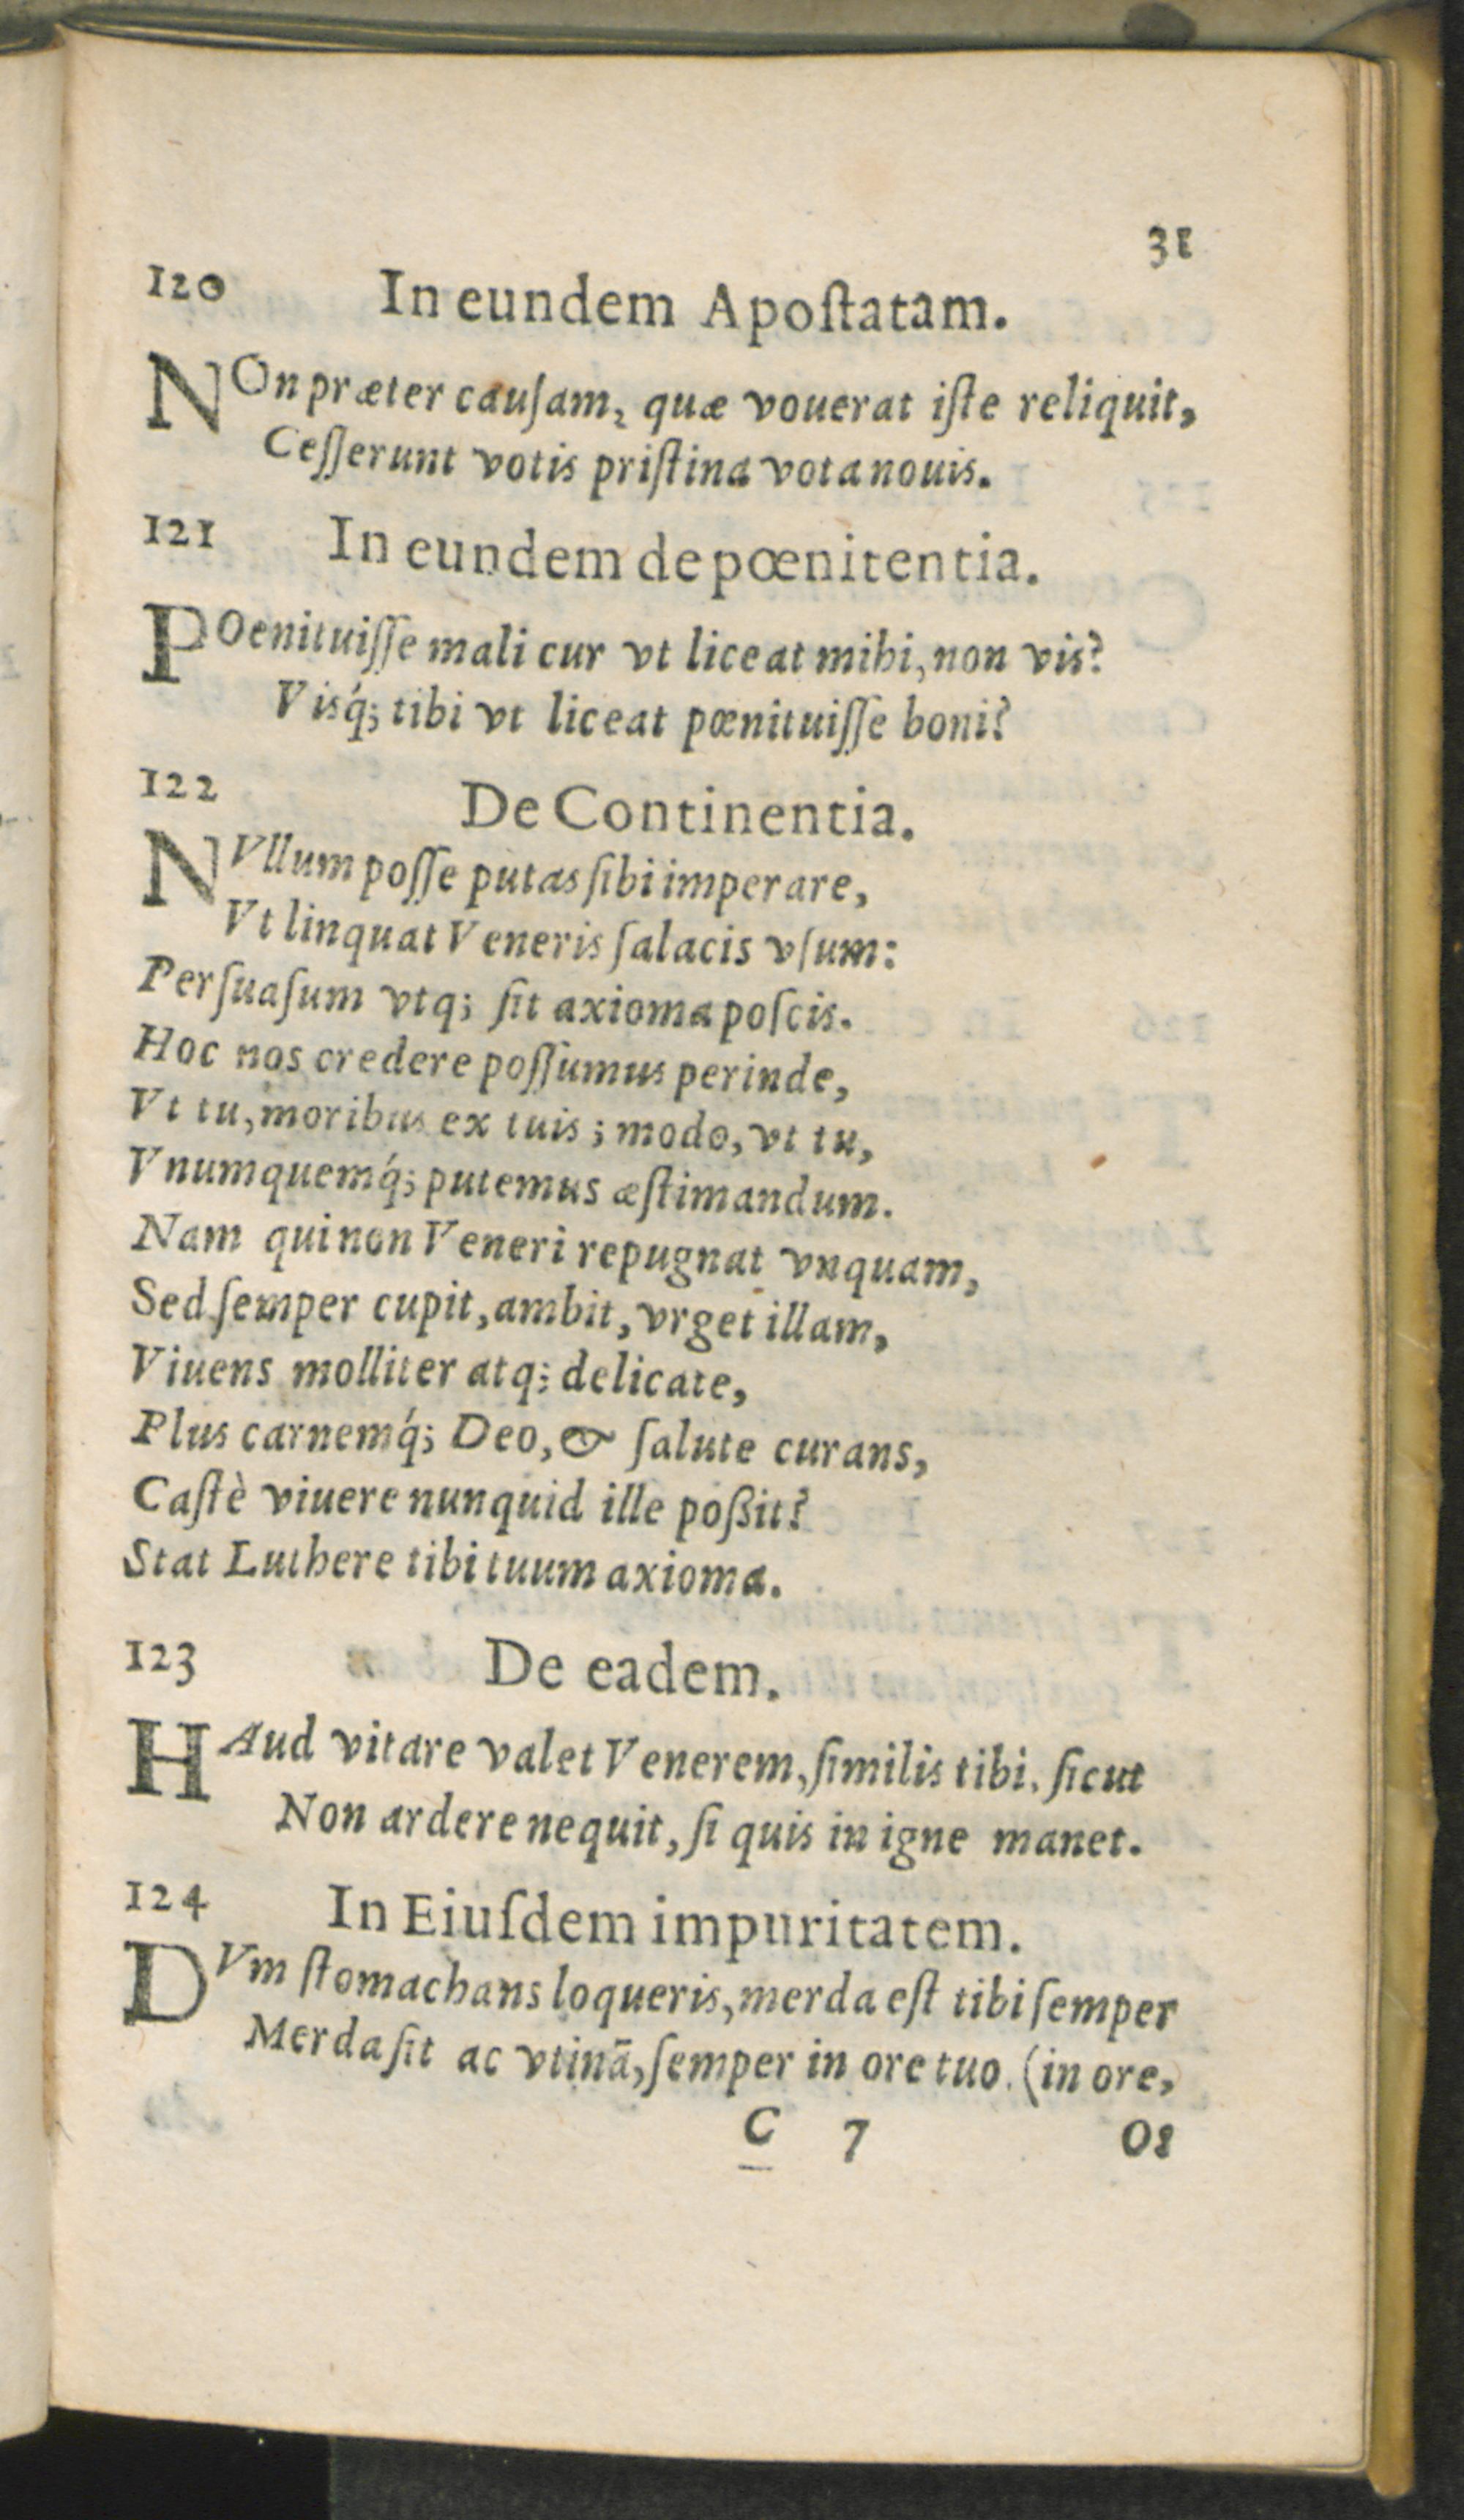 31
120 In eundem Apoſtatam.
NOn præter cauſam, quæ vouerat iſte reliquit,
Ceſſerunt votis priſtina vota nouis.
121 In eundem de pœnitentia.
POenituiſſe mali cur vt liceat mihi, non vis?
Viſq́; tibi vt liceat pœnituiſſe boni?
122 De Continentia.
NVllum poſſe putas ſibi imperare,
Vt linquat Veneris ſalacis vſum:
Perſuaſum vtq; ſit axioma poſcis.
Hoc nos credere poſſumus perinde,
Vt tu, moribus ex tuis; modo, vt tu,
Vnumquemq́; putemus æſtimandum.
Nam qui non Veneri repugnat vnquam,
Sed ſemper cupit, ambit, vrget illam,
Viuens molliter atq; delicate,
Plus carnemq́; Deo, & ſalute curans,
Caſtè viuere nunquid ille poßit?
Stat Luthere tibi tuum axioma.
123 De eadem.
HAud vitare valet Venerem, ſimilis tibi. ſicut
Non ardere nequit, ſi quis in igne manet.
124 In Eiuſdem impuritatem.
DVm ſtomachans loqueris, merda eſt tibi ſemper
Merda ſit ac vtinā, ſemper in ore tuo. (in ore,
C 7 Os